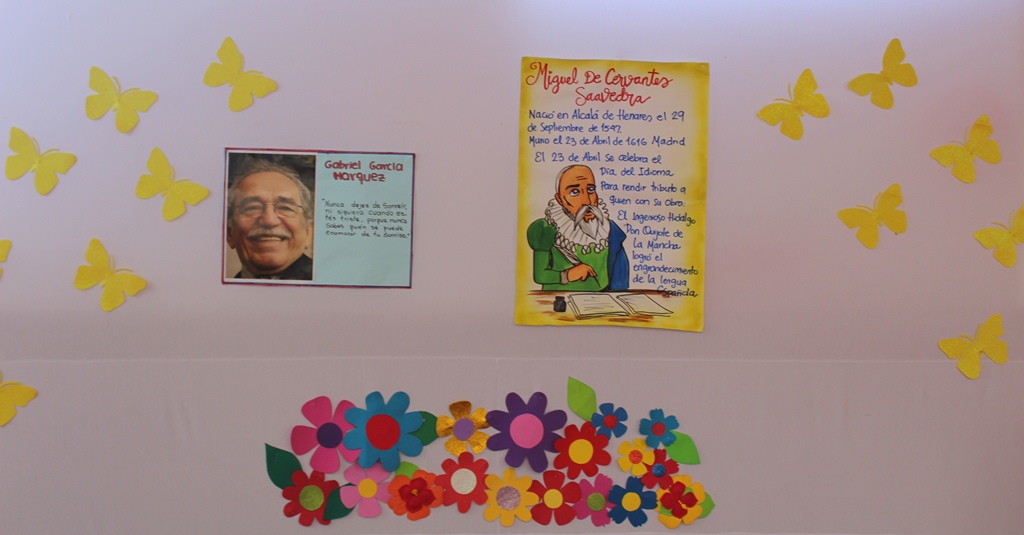 Gabriel García
Marquez
"Nunca dejes de Sonreír,
ni siquiera cuando es-
tés triste, porque nunca
Sabes quién se puede
enamorar de tu Sonrisa."
Miguel De Cervantes
Saavedra
Nació en Alcalá de Henares el 29
de Septiembre de 1547.
Murio el 23 de Abril de 1616 Madrid
El 23 de Abril se celebra el
Día del Idioma
Para rendir tributo a
quien con su Obra:
El Ingenioso Hidalgo
Don Quijote de
La Mancha
logró el
engrandecimiento
de la lengua
Española